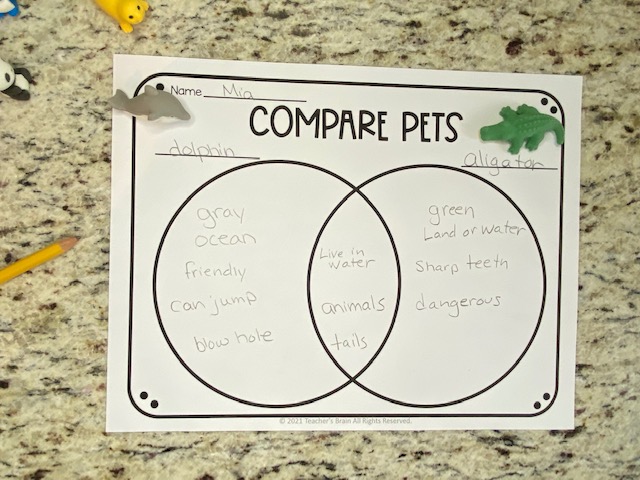 Name Mia
COMPARE PETS
dolphin
aligator
gray
ocean
friendly
can jump
blow hole
Live in
water
animals
tails
green
Land or water
Sharp teeth
dangerous
© 2021 Teacher's Brain All Rights Reserved.